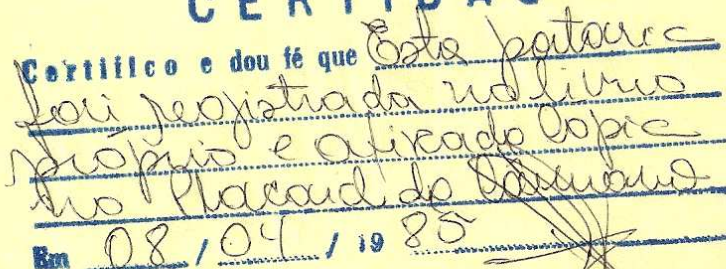 CERTIDÃO
Certifico e dou fé que Esta pataria
foi registrada no livro
próprio e afixado Copia
no Placard da
Em 08 / 04 / 19 85